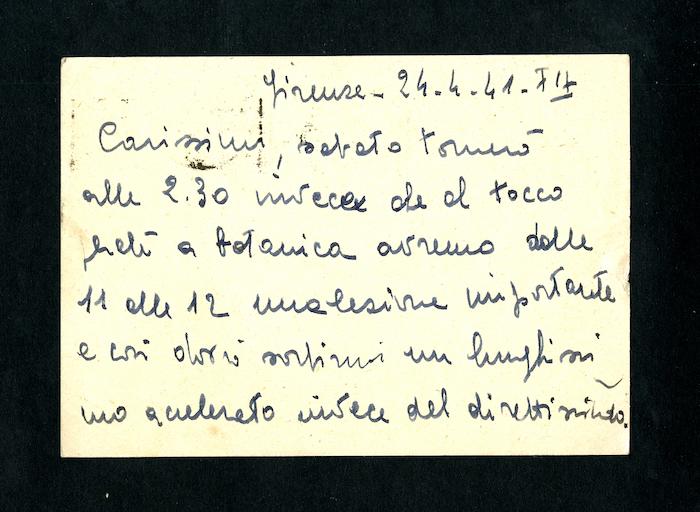 Firenze - 24-4-41-XIX
Carissimi, sabato tornerò
alle 2.30 invece che al tocco
perchè a botanica avremo dalle
11 alle 12 una lezione importante
e così dovrò sorbirmi un lunghissi
mo accelerato invece del direttissimo.